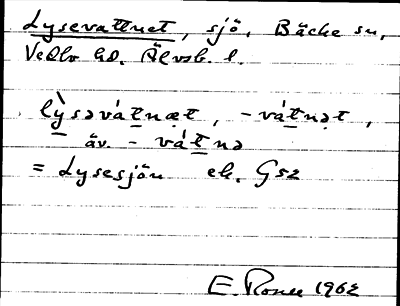 Lysevattnet, sjö, Bäcke sn,
Vedbo hd. Älvsb. l.
lỳsəvátnæt, -vátnət,
äv. -vátnə
= Lysesjön ek. G52
E. 1962